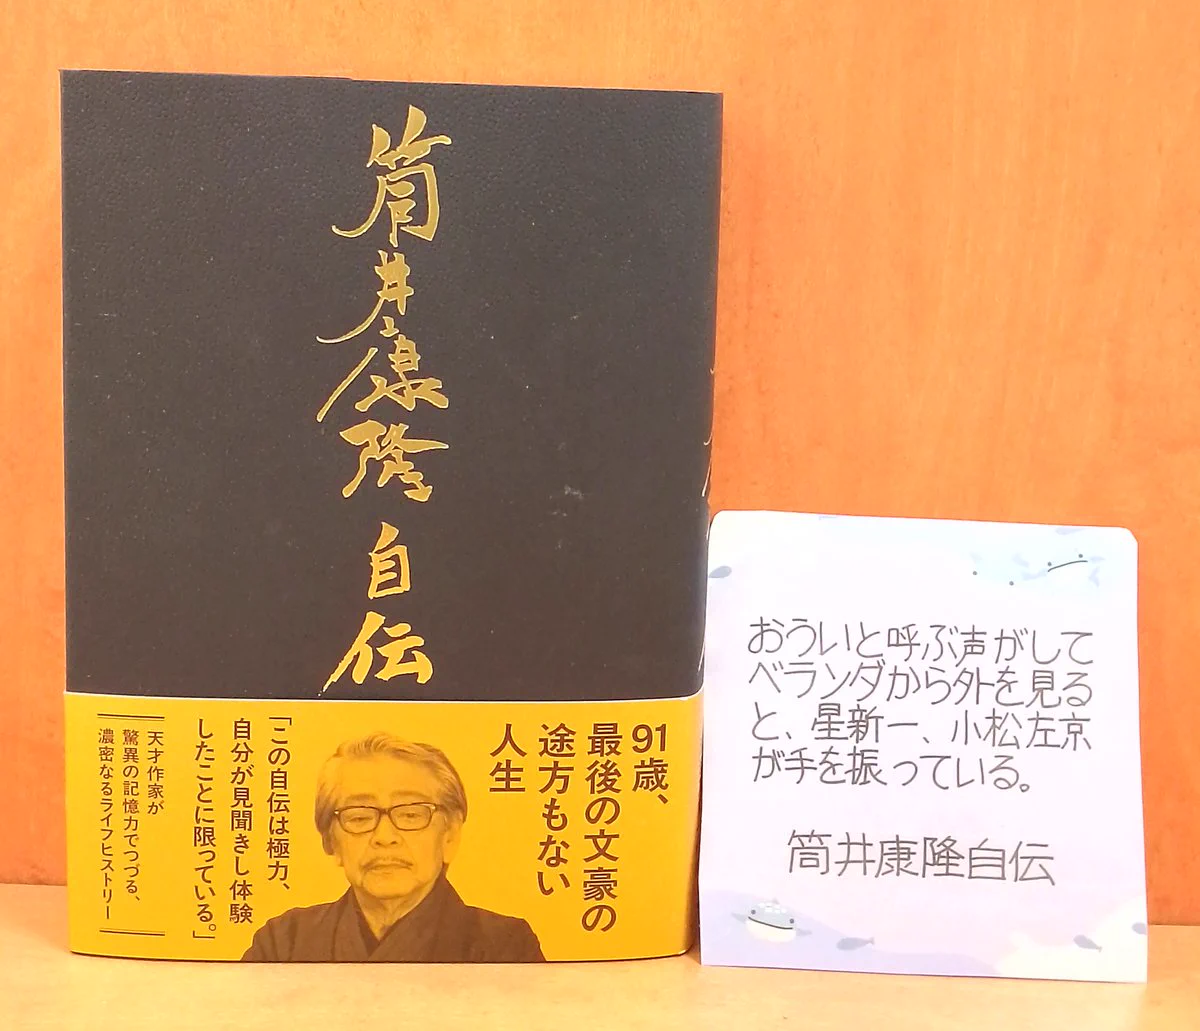 筒井康隆
自伝
91歳、
最後の文豪の
途方もない
人生
「この自伝は極力、
自分が見聞きし体験
したことに限っている。」
天才作家が
驚異の記憶力でつづる、
濃密なるライフヒストリー
おういと呼ぶ声がして
ベランダから外を見る
と、星新一、小松左京
が手を振っている。
筒井康隆自伝